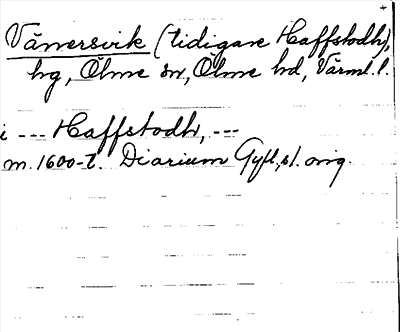 Vänersvik (tidigare Haffstodh),
hg, Ölme sn, Ölme hd, Värml. l.
i --- Haffstodh, ---
m. 1600-t. Diarium Gyll., sl. orig.